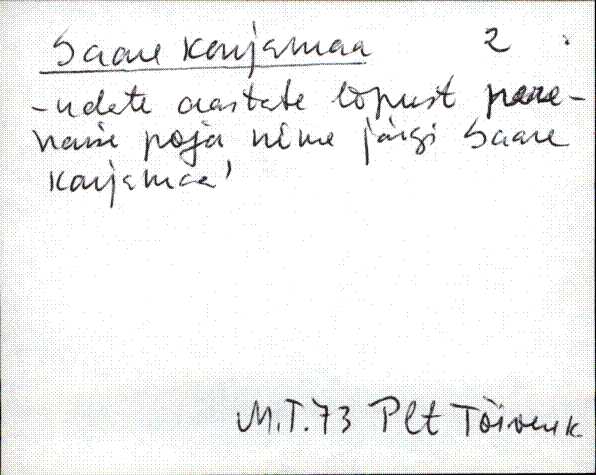 Saare karjamaa 2
-ndate aastate lõpust pere-
naise poja nime järgi Saare
karjamaa'
M.T.73 Plt Tõivenk